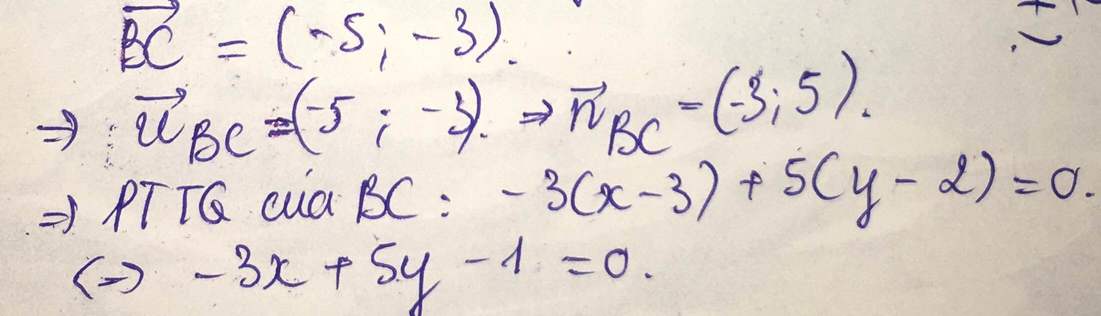 $\overrightarrow{BC} = (-5; -3).$
$\Rightarrow \vec{u}_{BC} = (-5; -3). \Rightarrow \vec{n}_{BC} = (-3; 5).$
$\Rightarrow$ PTTQ của BC: $-3(x-3) + 5(y-2) = 0.$
$\Leftrightarrow -3x + 5y - 1 = 0.$